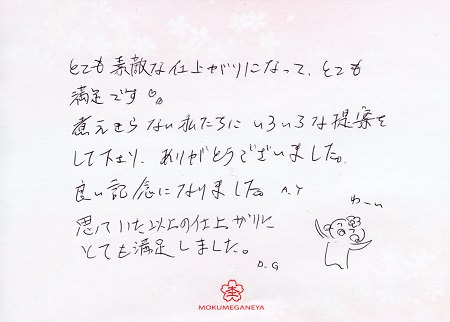 とても素敵な仕上がりになって、とても
満足です
煮えきらない私たちにいろいろな提案を
して下さり、ありがとうございました。
良い記念になりました。 A.Y
わーい
思っていた以上の仕上がりに
とても満足しました。
D.G
MOKUMEGANEYA